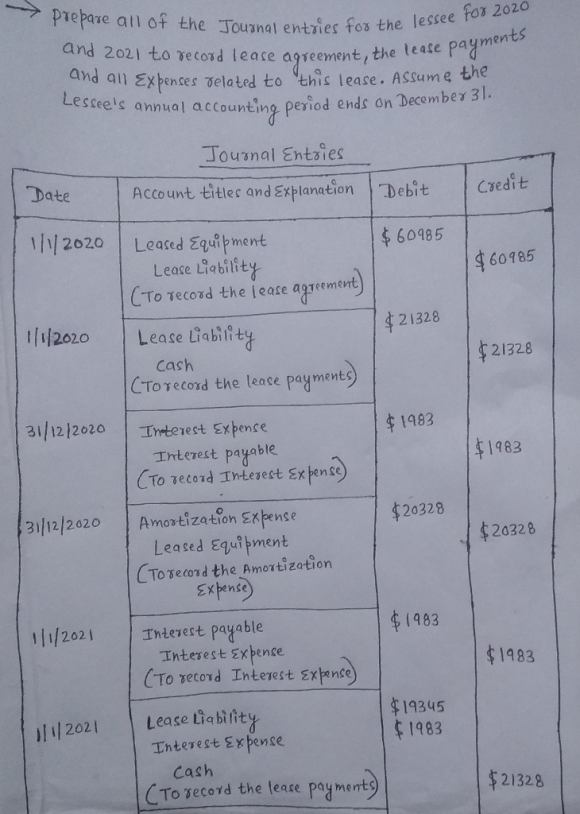 → Prepare all of the Journal entries for the lessee for 2020
and 2021 to record lease agreement, the lease payments
and all Expenses related to this lease. Assume the
Lessee's annual accounting period ends on December 31.
Journal Entries
Date Account titles and Explanation Debit Credit
1/1/2020 Leased Equipment $60985
Lease Liability $60985
(To record the lease agreement)
1/1/2020 Lease Liability $21328
Cash $21328
(To record the lease payments)
31/12/2020 Interest Expense $1983
Interest payable $1983
(To record Interest Expense)
31/12/2020 Amortization Expense $20328
Leased Equipment $20328
(To record the Amortization
Expense)
1/1/2021 Interest payable $1983
Interest Expense $1983
(To record Interest Expense)
1/1/2021 Lease Liability $19345
Interest Expense $1983
Cash $21328
(To record the lease payments)